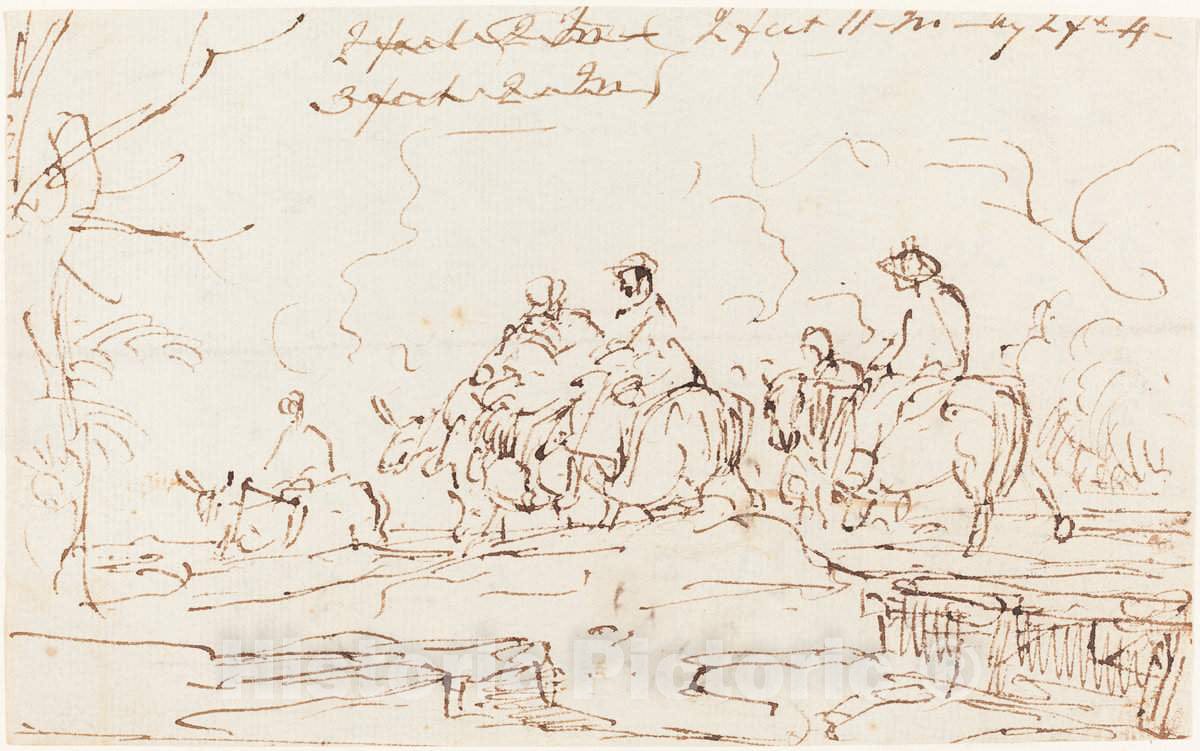 2 feet 2 In 2 feet 11 In by 2 f 4
3 feet 2 In
Historic Pictoric ©